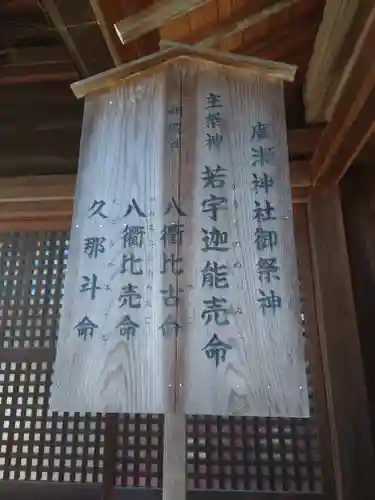 廣瀬神社御祭神
主祭神
若宇迦能売命
八衢比古命
八衢比売命
久那斗命